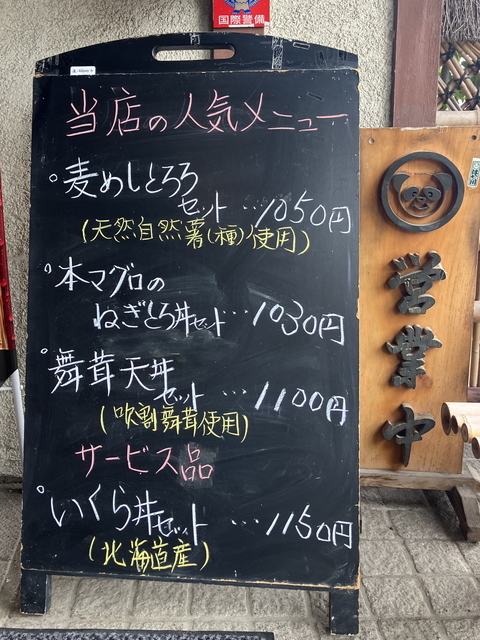 国際警備
当店の人気メニュー
麦めしとろろ
セット…1050円
(天然自然薯(種)使用)
本マグロの
ねぎとろ丼セット…1030円
舞茸天丼
セット…1100円
(吹割舞茸使用)
サービス品
いくら丼セット…1150円
(北海道産)
営業中